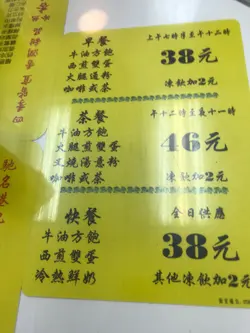 早餐
上午七時至至十二時
牛油方飽
西煎雙蛋
38元
火腿通粉
咖啡或茶
凍飲加2元
茶餐
下午十二時至晚十一時
牛油方飽
火腿煎雙蛋
46元
叉燒湯意粉
咖啡或茶
凍飲加2元
快餐
全日供應
牛油方飽
38元
西煎雙蛋
冷熱鮮奶
其他凍飲加2元